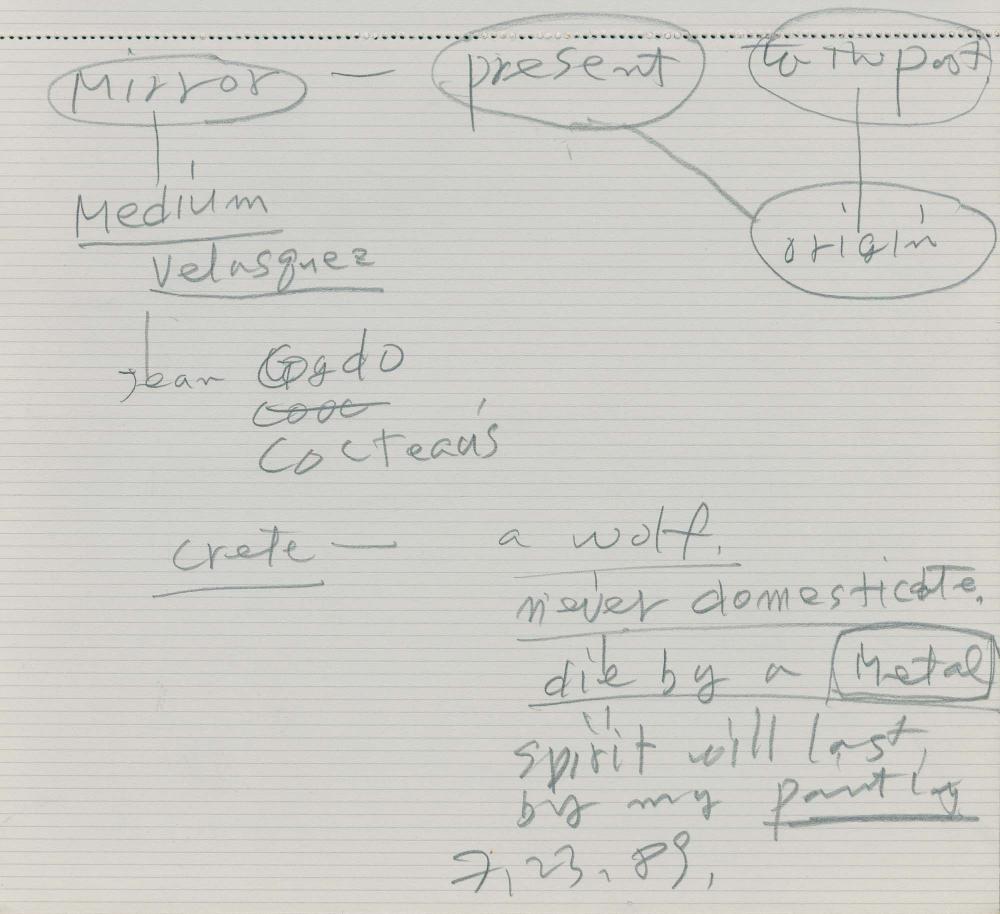 Mirror — present to the past
origin
Medium
Velasquez
Jean
Cocteau's
Crete — a wolf.
never domesticate.
die by a Metal
spirit will last,
by my painting
7, 23, 89,